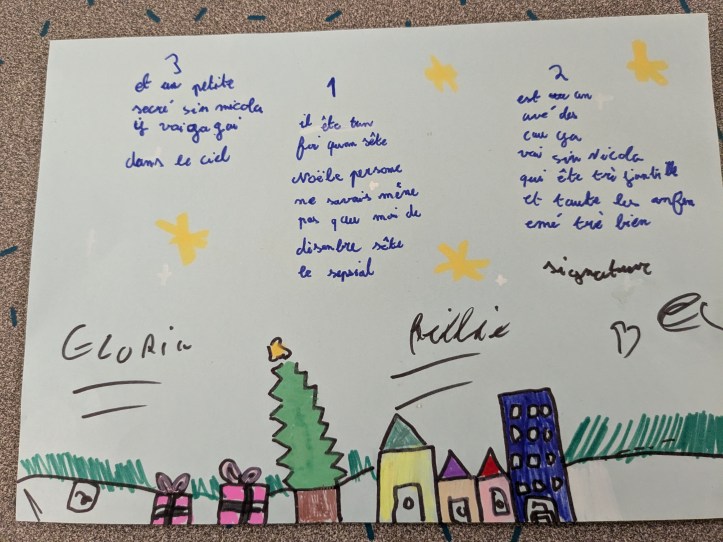 3
et un petite
secré sin nicola
ij vaigagai
dans le ciel
1
il éte tun
foi quan séte
Noële persone
ne savais mêne
pas que moi de
disenbre séte
le sepsial
2
est un
avé des
cau ça
vai sin Nicola
qui éte trè jantil
et taute les anfen
emé trè bien
signature
GLORia
Billie